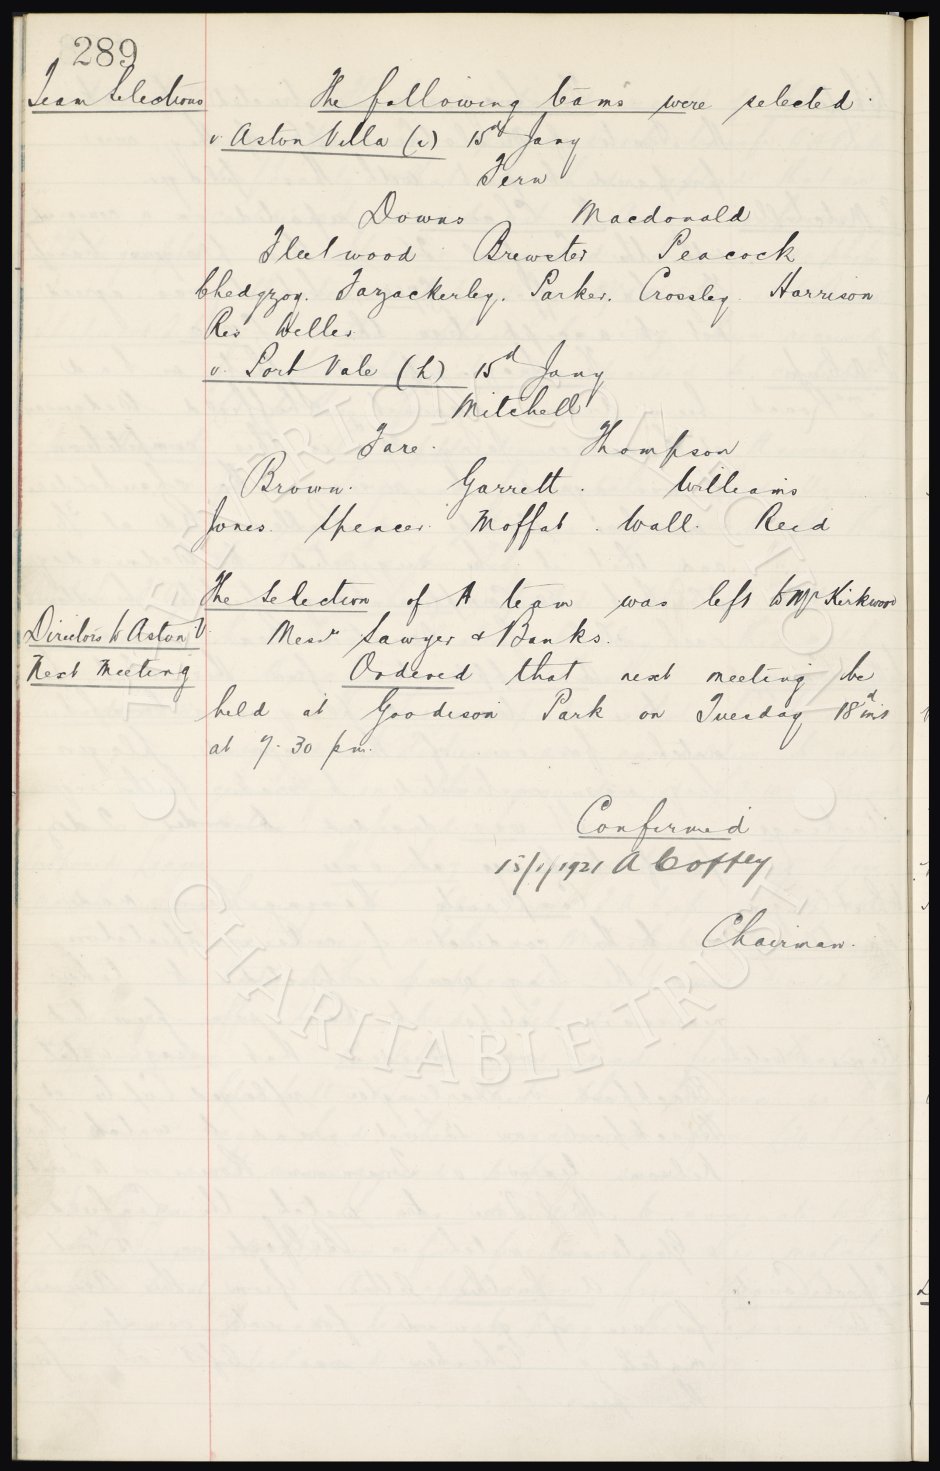 289
Team Selections
The following teams were selected.
v. Aston Villa (a) 15th Jany
Fern
Downs Macdonald
Fleetwood Brewster Peacock
Chedgzoy. Fazackerley. Parker. Crossley. Harrison
Res Weller
v. Port Vale (h) 15th Jany
Mitchell
Fare. Thompson
Brown. Garrett. Williams
Jones. Spencer. Moffat. Wall. Reid
The Selection of A team was left to Mr Kirkwood
Directors to Aston V.
Messrs Sawyer & Banks.
Next Meeting
Ordered that next meeting be
held at Goodison Park on Tuesday 18th inst
at 7.30 pm.
Confirmed
15/1/1921 A Coffey
Chairman.
EVERTON COLLECTION
CHARITABLE TRUST